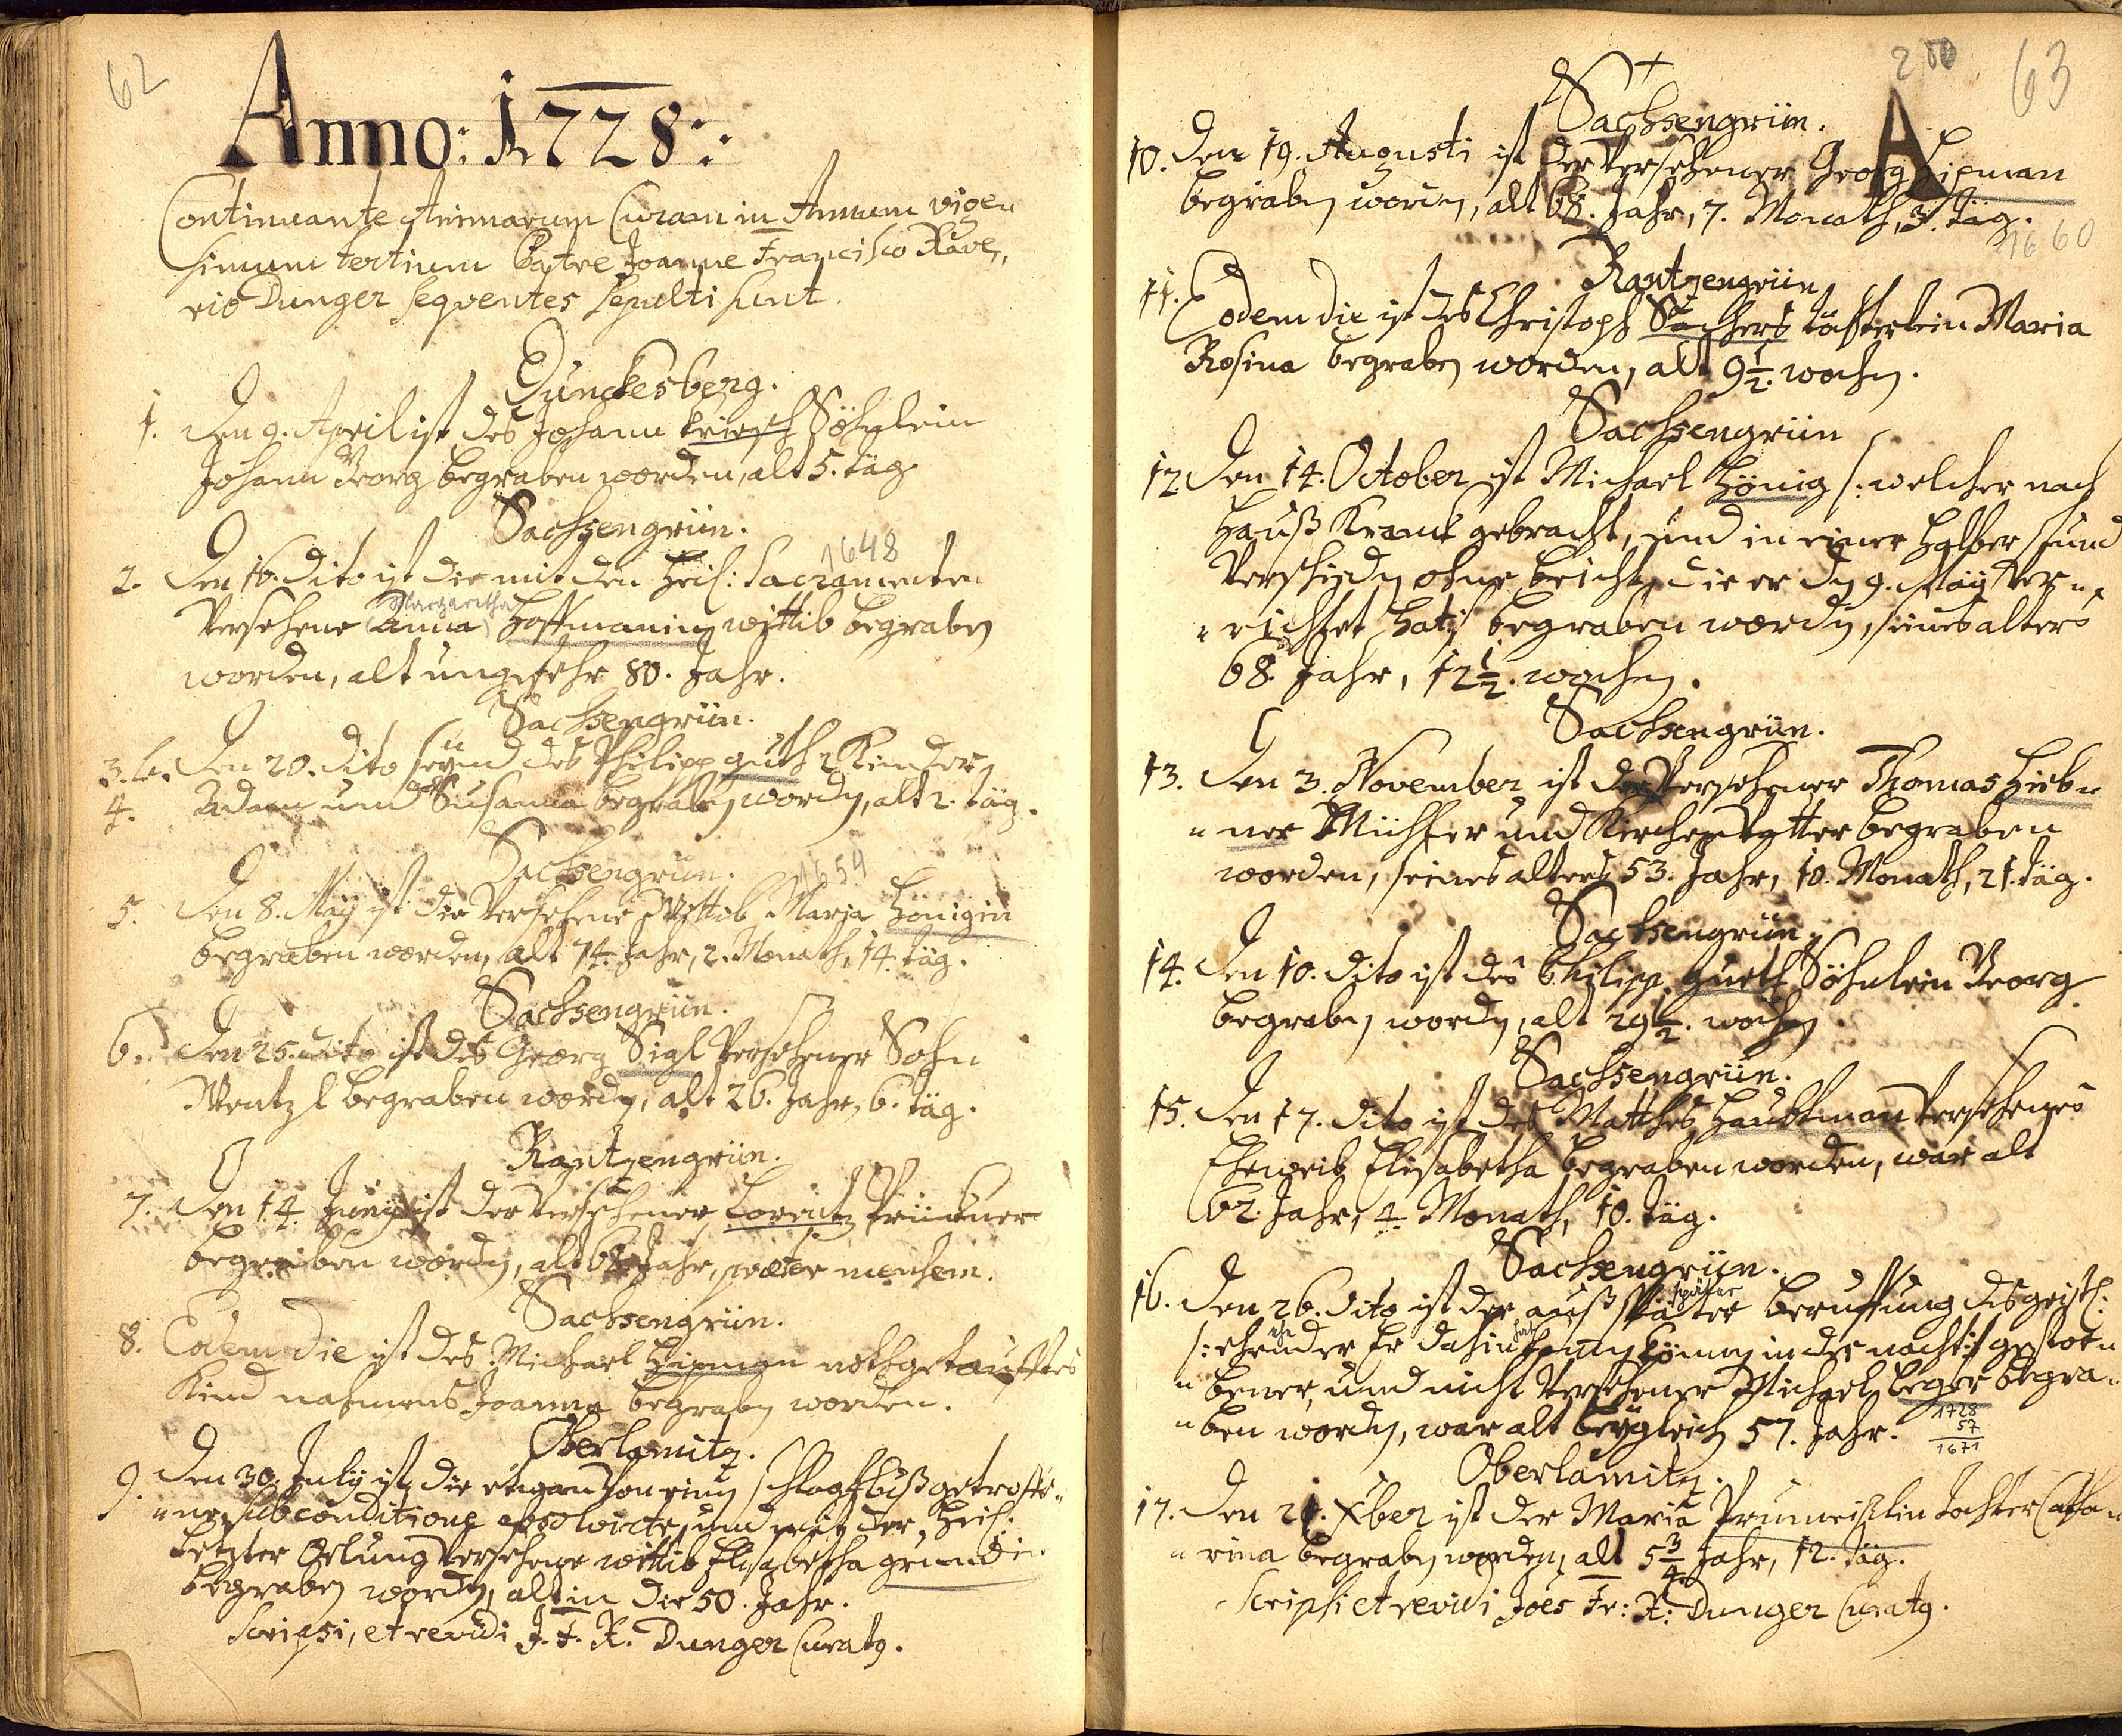 62
Anno: 1728:
Continuante Animarum Curam in Annum vige„
simum tertium Patre Joanne Francisco Xave„
rio Dunger seqventes sepulti sunt.
Dunckesberg.
1. Den 9. April ist des Johann Söhnlein
Johann Georg begraben worden, alt 5. täg.
Sachsengrün.
1648
2. Den 16. dito ist die mit den Heil: Sacramenten
Margaretha
versehene (Anna) Hoffmanin wittib begraben
worden, alt ungefehr 80. Jahr.
Sachsengrün.
3. et. Den 20. dito seynd des Philipp guth 2 Kinder
4. Adam und Susanna begraben worden, alt 2. täg.
Sachsengrün.
1654
5. Den 8. Maÿ ist die versehene Wittib Maria Hönigin
begraben worden, alt 74. Jahr, 2. Monath, 14. täg.
Sachsengrün.
6. Den 25. dito ist des Georg Sigl versehener Sohn
Wentzl begraben worden, alt 26. Jahr, 6. täg.
Rantzengrün.
7. Den 14. Junÿ ist der versehener Lorentz
begraben worden, alt 68 Jahr, præter mensem.
Sachsengrün.
8. Eodem die ist des Michael Hipman nothgetaufftes
Kind nahmens Joanna begraben worden.
Oberlomitz.
9. Den 30. July ist die wegen von einen schlagfluß getroffe„
„ne, sub conditione absolvirte, und mit der Heil:
letzter Oelung versehene wittib Elisabetha grundin
begraben worden, alt in die 50. Jahr.
Scripsi, et revidi J. F. X. Dunger Curatq.
200 63
A
Sachsengrün.
10. Den 19. Augusti ist der versehener Georg Hipman
begraben worden, alt 68. Jahr, 7. Monath, 3. täg.
1660
Rantzengrün
11. Eodem die ist des Christoph Sachers töchterlein Maria
Rosina begraben worden, alt 9 1/2. wochen.
Sachsengrün
12. Den 14. October ist Michael Hönig /: welcher nach
Hauß Kranck gebracht, und in einer halber stund
verschieden ohne beicht, die er den 9. Maÿ ver„
„richtet hat:/ begraben worden, seines alters
68. Jahr, 12 1/2. wochen.
Sachsengrün.
13. Den 3. November ist der versehener Thomas Hieb„
„ner Müller und Kirchenvatter begraben
worden, seines alters 53. Jahr, 10. Monath, 21. täg.
Sachsengrün.
14. Den 10. dito ist des Philipp gueth Söhnlein Georg
begraben worden, alt 29 1/2. wochen
Sachsengrün.
15. Den 17. dito ist des Matthes Haubtman versehenes
Eheweib Elisabetha begraben worden, war alt
62. Jahr, 4. Monath, 10. täg.
Sachsengrün.
später
16. Den 26. dito ist der auß später beruffung des geistl:
ehe hat
/: ehender Er dahin kommen können in der nacht:/ gestor„
„bener, und nicht versehener Michael beger begra„
„ben worden, war alt beÿgleich 57. Jahr.
1728
57
1671
Oberlamitz.
17. Den 21. Xber ist der Maria Tochter Catha„
„rina begraben worden, alt 5 3/4 Jahr, 12. täg.
Scripsi et revidi Joës Fr: X: Dunger Curatq.